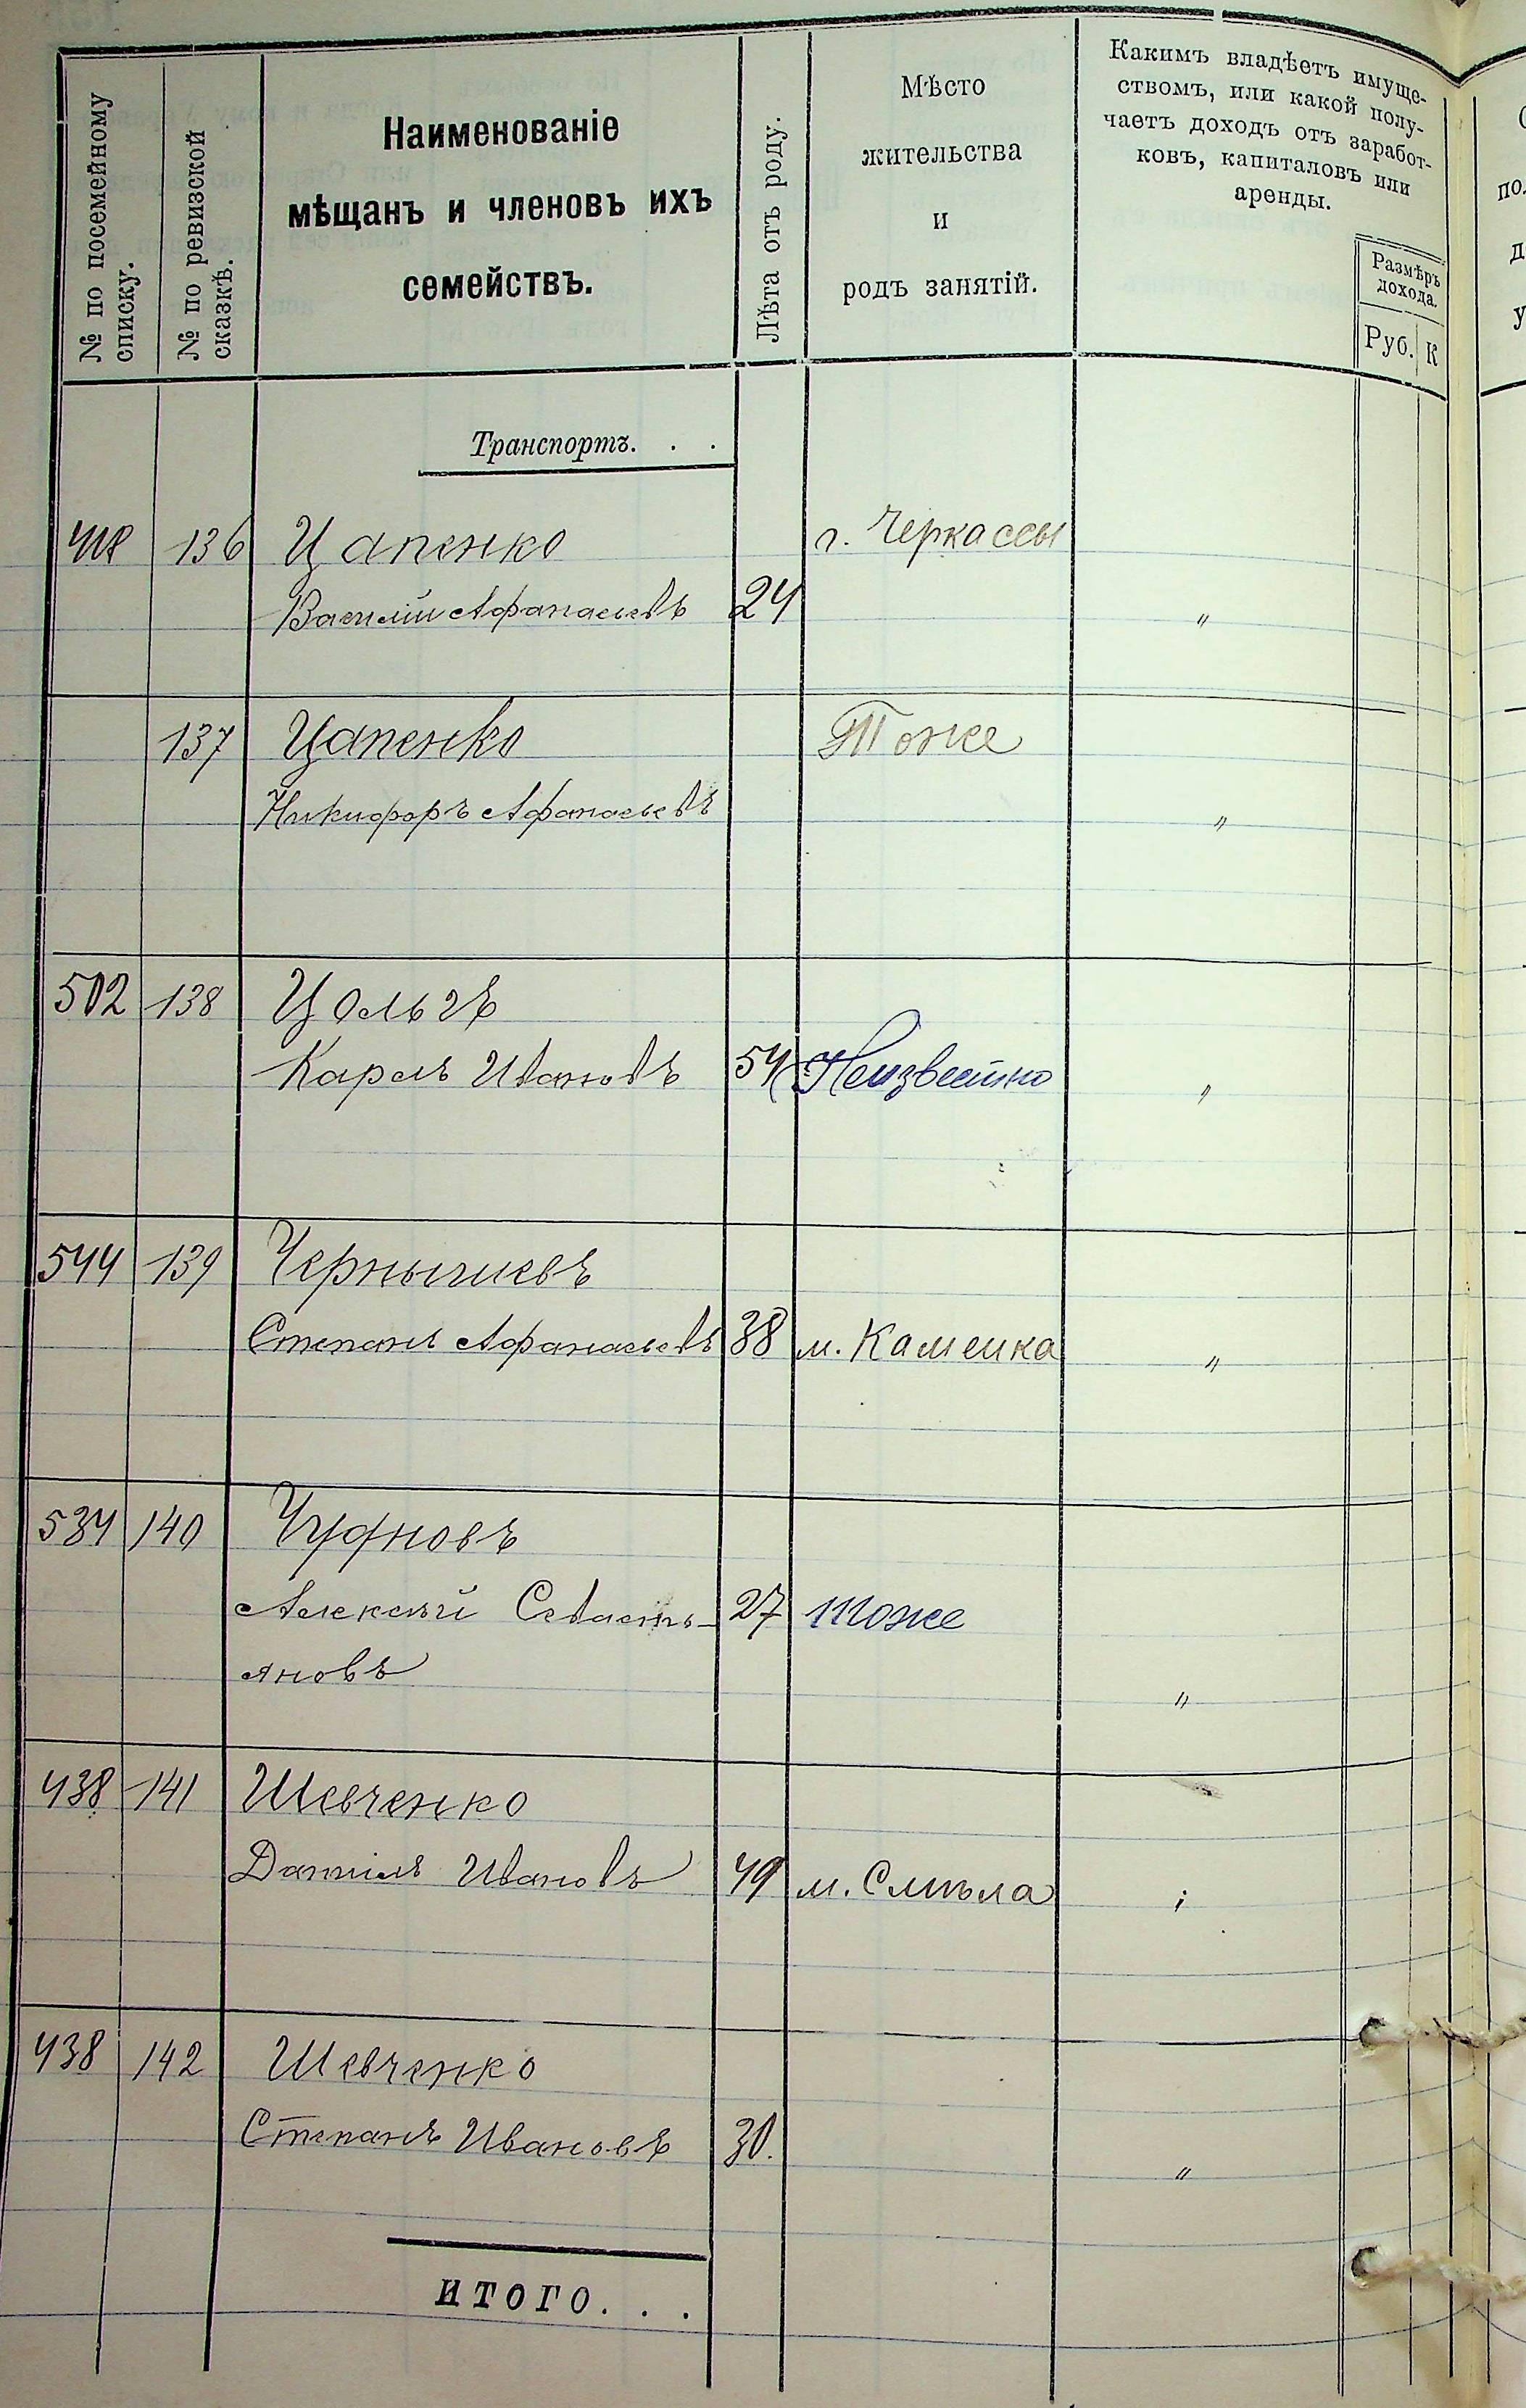 № по посемейному
списку.
№ по ревизской
сказкѣ.
Наименованіе
мѣщанъ и членовъ ихъ
семействъ.
Лѣта отъ роду.
Мѣсто
жительства
и
родъ занятій.
Какимъ владѣетъ имуще-
ствомъ, или какой полу-
чаетъ доходъ отъ заработ-
ковъ, капиталовъ или
аренды.
Размѣръ
дохода.
Руб. К
Транспортъ. . .
136 Цапенко г. Черкассы
Василій Афанасьевъ 24 "
137 Цапенко Тоже
Никифоръ Афанасьевъ "
502 138 Цольгъ
Карлъ Ивановъ 54 Неизвестно "
544 139 Чернышевъ
Степанъ Афанасьевъ 38 м. Каменка "
534 140 Чудновъ
Алексѣй Севасть- 27 Тоже
яновъ "
438 141 Шевченко
Даніилъ Ивановъ 49 м. Смѣла "
438 142 Шевченко
Степанъ Ивановъ 30. "
ИТОГО. . .